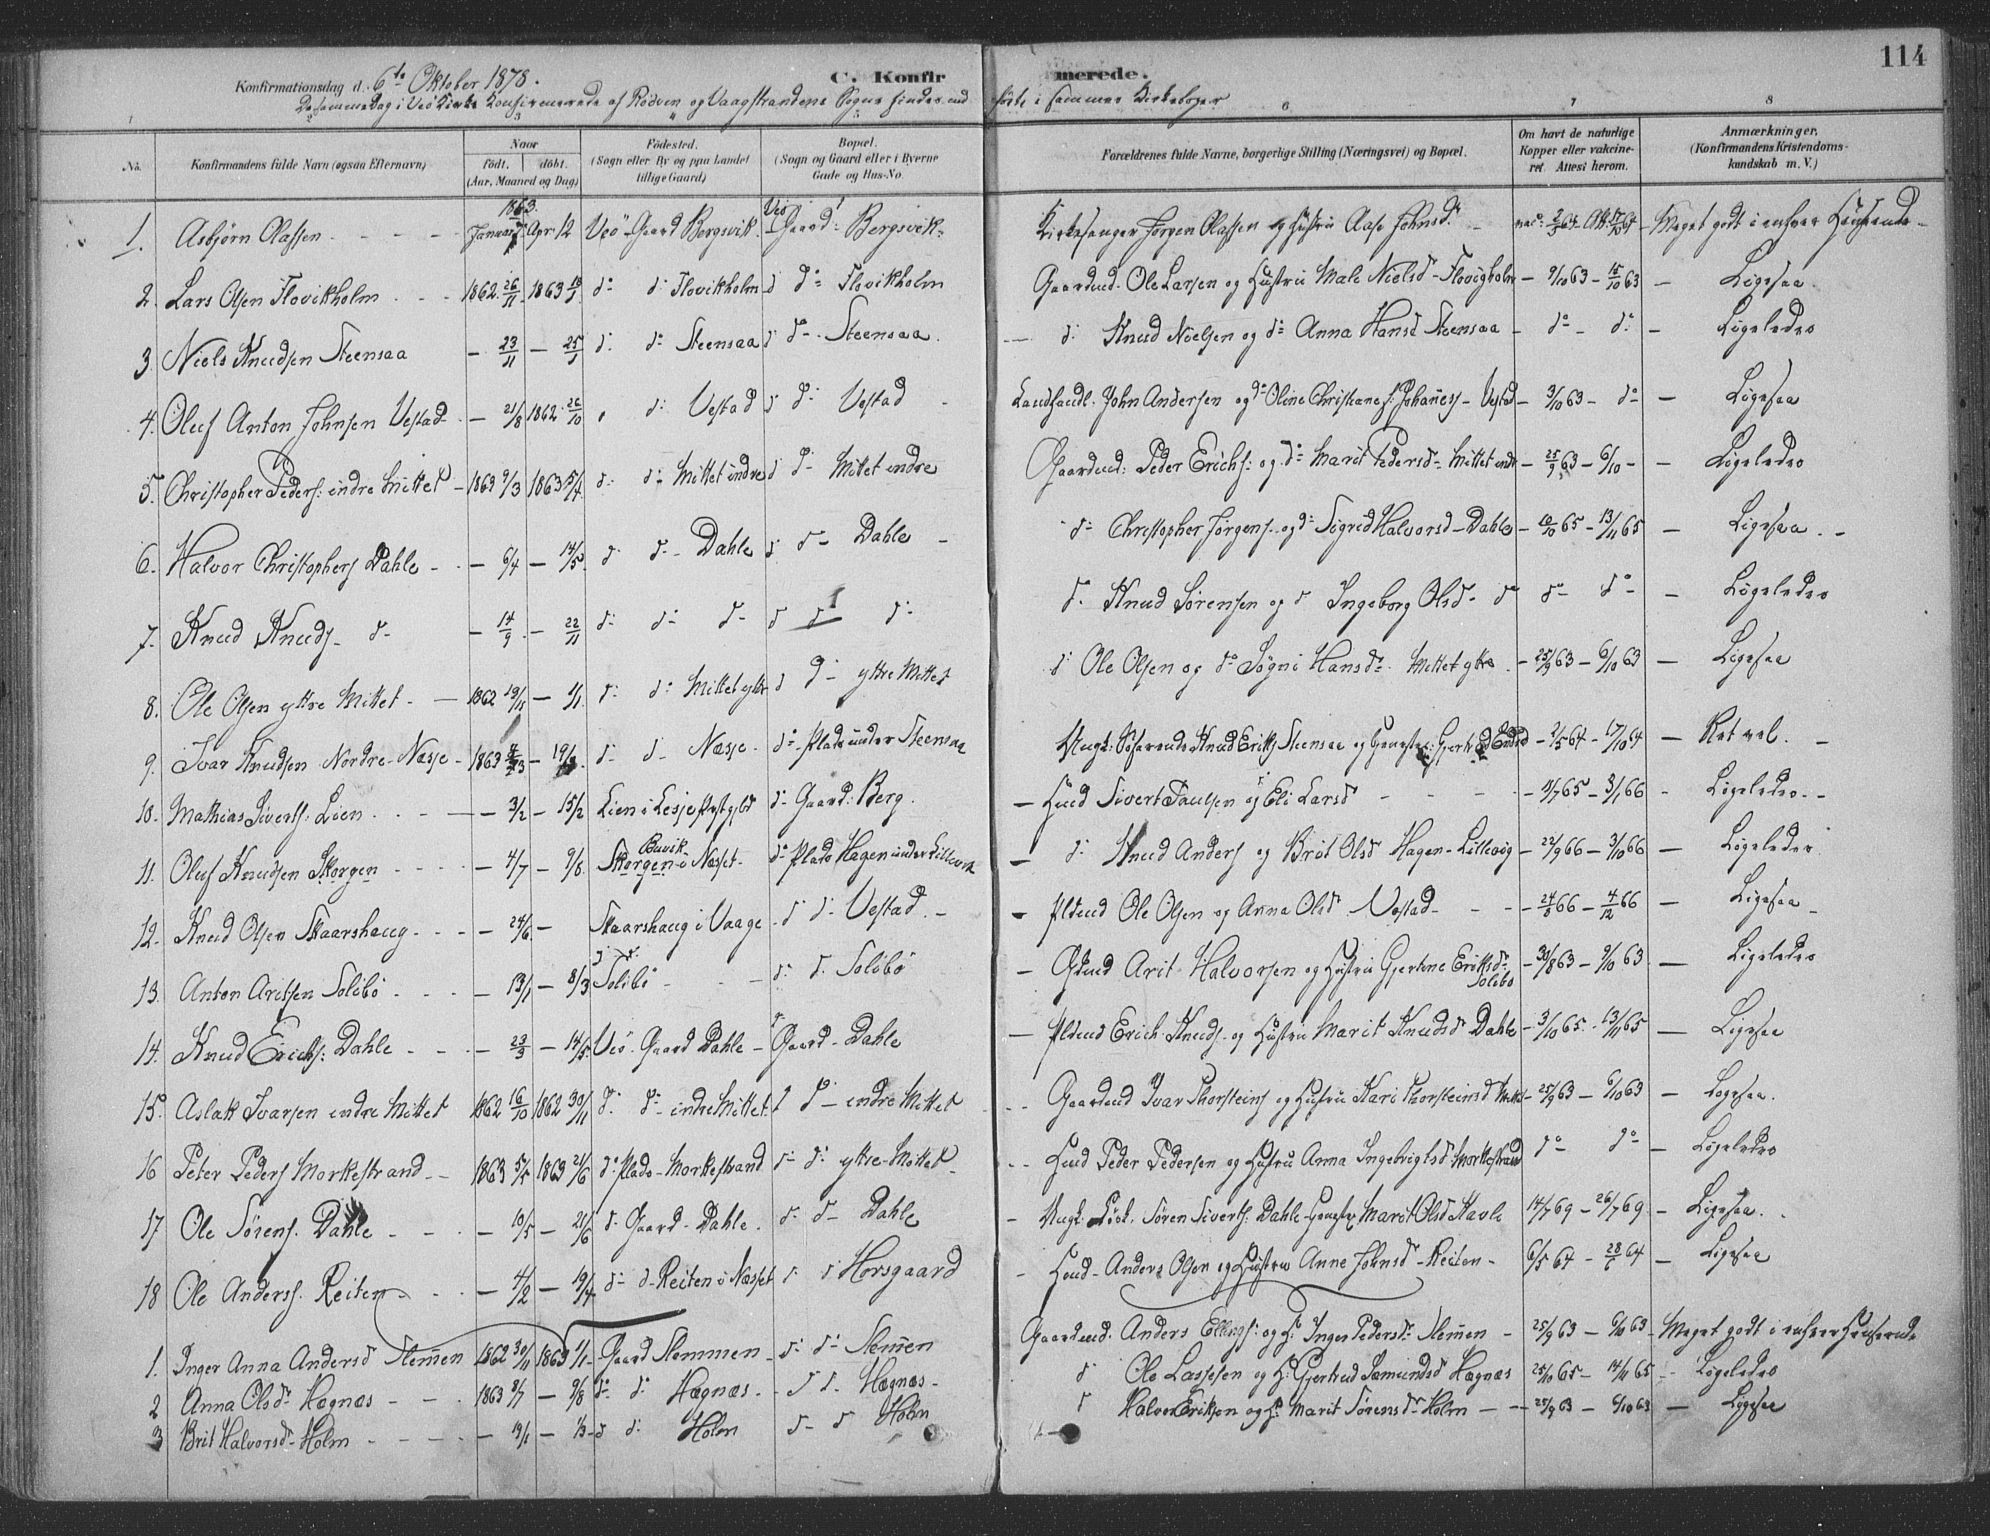 114
Konfirmationsdag d. 6te Oktober 1878. C. Konfirmerede.
De samme Dag i Veö Kirke Konfirmerede af Rödven og Vaagstrandens Sogne findes indførte i sammes Kirkebøger
1 2 3 4 5 6 7 8
No. Konfirmandens fulde Navn (ogsaa Efternavn) Naar født. døbt. (Aar, Maaned og Dag) Fødested. (Sogn eller By og paa Landet tillige Gaard) Bopæl. (Sogn og Gaard eller i Byerne Gade og Hus-No. Forældrenes fulde Navne, borgerlige Stilling (Næringsvei) og Bopæl. Om havt de naturlige Kopper eller vaccineret. Attest herom. Anmærkninger. (Konfirmandens Kristendomskundskab m. V.)
1. Asbjörn Olassen 1863. Januar Apr 12 Veö - Gaard Bergsvik. Veö Gaard: Bergsvik - Kirkesanger Jörgen Olassen og Hustru Aase Johnsd: Meget godt i enhver Henseende
2. Lars Olsen Flovikholm 1862 26/11 1863 do do Flovikholm d do Flovikholm Gaardmd. Ole Larsen og Hustru Male Nielsd - Flovigholm - 9/10 63 - 15/10 63 - Ligesaa.
3. Niels Knudsen Steensaa - 23/11 - 25/1 d: do Steensaa d do Steensaa. d: Knud Nielsen og do Anna Hansd Steensaa - do - do - Ligeledes
4. Oluf Anton Johnsen Vestad - 21/8 1862 26/10 d: Vestad d do Vestad Landhandl: John Andersen og do Oline Christiane Johannesd - Vestad - 3/10 63 - do - Ligesaa
5. Christopher Peders: indre Mittet - 1863 9/3 1863 5/4 d: do Mittet indre d do Mittet indre Gaardmd: Peder Erichs: og do Marit Pedersd - Mittet indr - 25/9 63 - 6/10 - - Ligeledes
6. Halvor Christophers Dahle - 6/4 - 14/5 d do Dahle d do Dahle do Christopher Jörgens. og do Sigrid Halvorsd - Dahle - 10/10 65 - 13/11 65 - Ligesaa
7. Knud Knuds - do - 14/9 - 22/11 do do do d do do d. Knud Sörensen og d Ingeborg Olsd - do do do - Ligeledes
8. Ole Olsen yttre Mittet - 1862 19/11 - 1/1 d: do Mittet yttr d do yttre Mittet d Ole Olsen og do Sögni Hansd. Mittet yttre - 25/9 63 - 6/10 63 - Ligesaa
9. Ivar Knudsen Nordre-Næsje - 1863 - 19/ do do Næsje. do Plads under Steensaa Ungk: Söfarende Knud Eriks Steensaa og Gjertrud - 2/5 64 - 17/10 64 - Ret vel.
10. Mathias Siverts. Lien - 3/2 - 15/2 Lien i Lesje Præstgjeld do Gaard: Berg. - Huusmd Sivert Paulsen og Eli Larsd - 11/7 65 - 3/1 66 - Ligeledes
11. Oluf Knudsen Skorgen - 4/7 - 9/8 Buvik Skorgen i Næsset do Plads Hagen under Lillevik - d: Knud Anders og Brit Olsd Hagen - Lillevig - 22/9 66 - 3/10 66 - Ligeledes
12. Knud Olsen Skaarshaug - 24/6 - Skaarshaug i Vaage - d do Vestad - Pldmd Ole Olsen og Anna Olsd Vestad - 24/8 66 - 4/12 66 - Ligesaa
13. Anton Aritsen Solibö - 13/1 - 8/3 Solibö d: d. Solibö - Gdmd Arit Halvorsen og Hustru Gjertine Eriksd: Solibö - 30/8 63 - 9/10 63 - Ligeledes
14. Knud Erichs: Dahle - 23/3 - 14/5 Veö - Gaard Dahle - Gaard - Dahle - Pldmd Erich Knuds. og Hustru Marit Knudsd Dahle - 3/10 65 - 13/11 65 - Ligesaa
15. Aslak Ivarsen indre Mittet 1862 16/10 1862 30/11 d: do indre Mittet. d do indre Mittet Gaardmd Ivar Thorsteins og Hustru Kari Thorsteinsd Mittet - 25/9 63 - 6/10 63 - Ligesaa.
16 Peter Peders Morkestrand - 1863 5/5 1863 21/6 do Plads - Morkestrand do do yttre - Mittet Hmd Peder Pedersen og Hustru Anna Ingebrigtsd Morkestrand do do - Ligeledes
17 Ole Sörens. Dahle - 10/5 - 21/6 d: Gaard - Dahle. d: do Dahle - Ungk. Sören Siverts: Dahle Marit Olsd Stavli 14/7 69 - 26/7 69 - Ligesaa.
18 Ole Anders. Reiten - 4/2 - 19/4 do d Reiten i Næsset d d Horsgaard - Hmd - Anders Olsen og Hustru Anne Johnsd - Reiten - 6/5 64 - 28/6 64 - Ligesaa
1. Inger Anna Andersd Slemmen 1862 30/11 1863 1/1 Gaard Slemmen - d: do Slemmen Gaardmd. Anders Ellings: og H: Inger Pedersd: Slemmen - 25/9 63 - 9/10 63 - Meget godt i enhver Henseende
2 Anna Olsd. Hægnæs 1863 8/7 - 9/8 do do Hægnæs - d d. Hægnæs - d Ole Lassesen og H: Gjertrud Sæmundsd Hægnæs 25/10 65 - 14/11 65 - Ligeledes
3 Brit Halvorsd - Holm - 19/1 - 1/3 - d d: Holm d - d Holm d Halvor Eriksen og H: Marit Sörensd Holm - 25/9 63 - 6/10 63 - Ligesaa